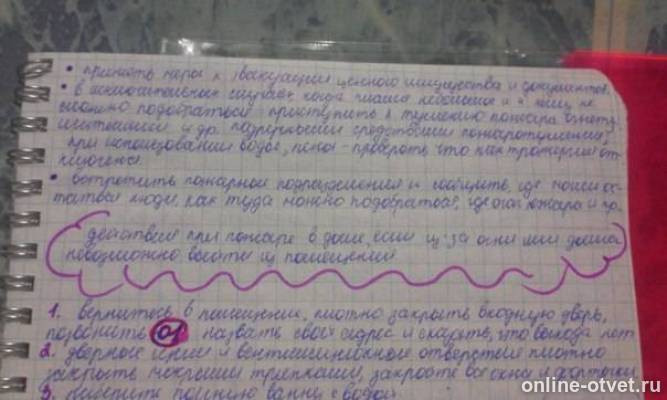 • принять меры к эвакуации ценного имущества и документов.
• в исключительных случаях когда пламя небольшое и к нему не
сложно подобраться - приступить к тушению пожара огнету
шителями и др. подручными средствами пожаротушения,
при использовании воды, пены - проверять что электроэнергия от
ключена.
• встретить пожарное подразделение и сообщить, где
люди, как туда можно подобраться, где очаг пожара и
действия при пожаре в доме, если из-за огня или дыма
невозможно выйти из помещения
1. вернитесь в помещение, плотно закрыть входную дверь,
позвонить 01 назвать свой адрес и сказать, что выхода нет
2. дверные щели и вентиляционные отверстия плотно
закрыть мокрыми тряпками, закройте все окна и форточки
3. полную ванну с водой
online-otvet.ru